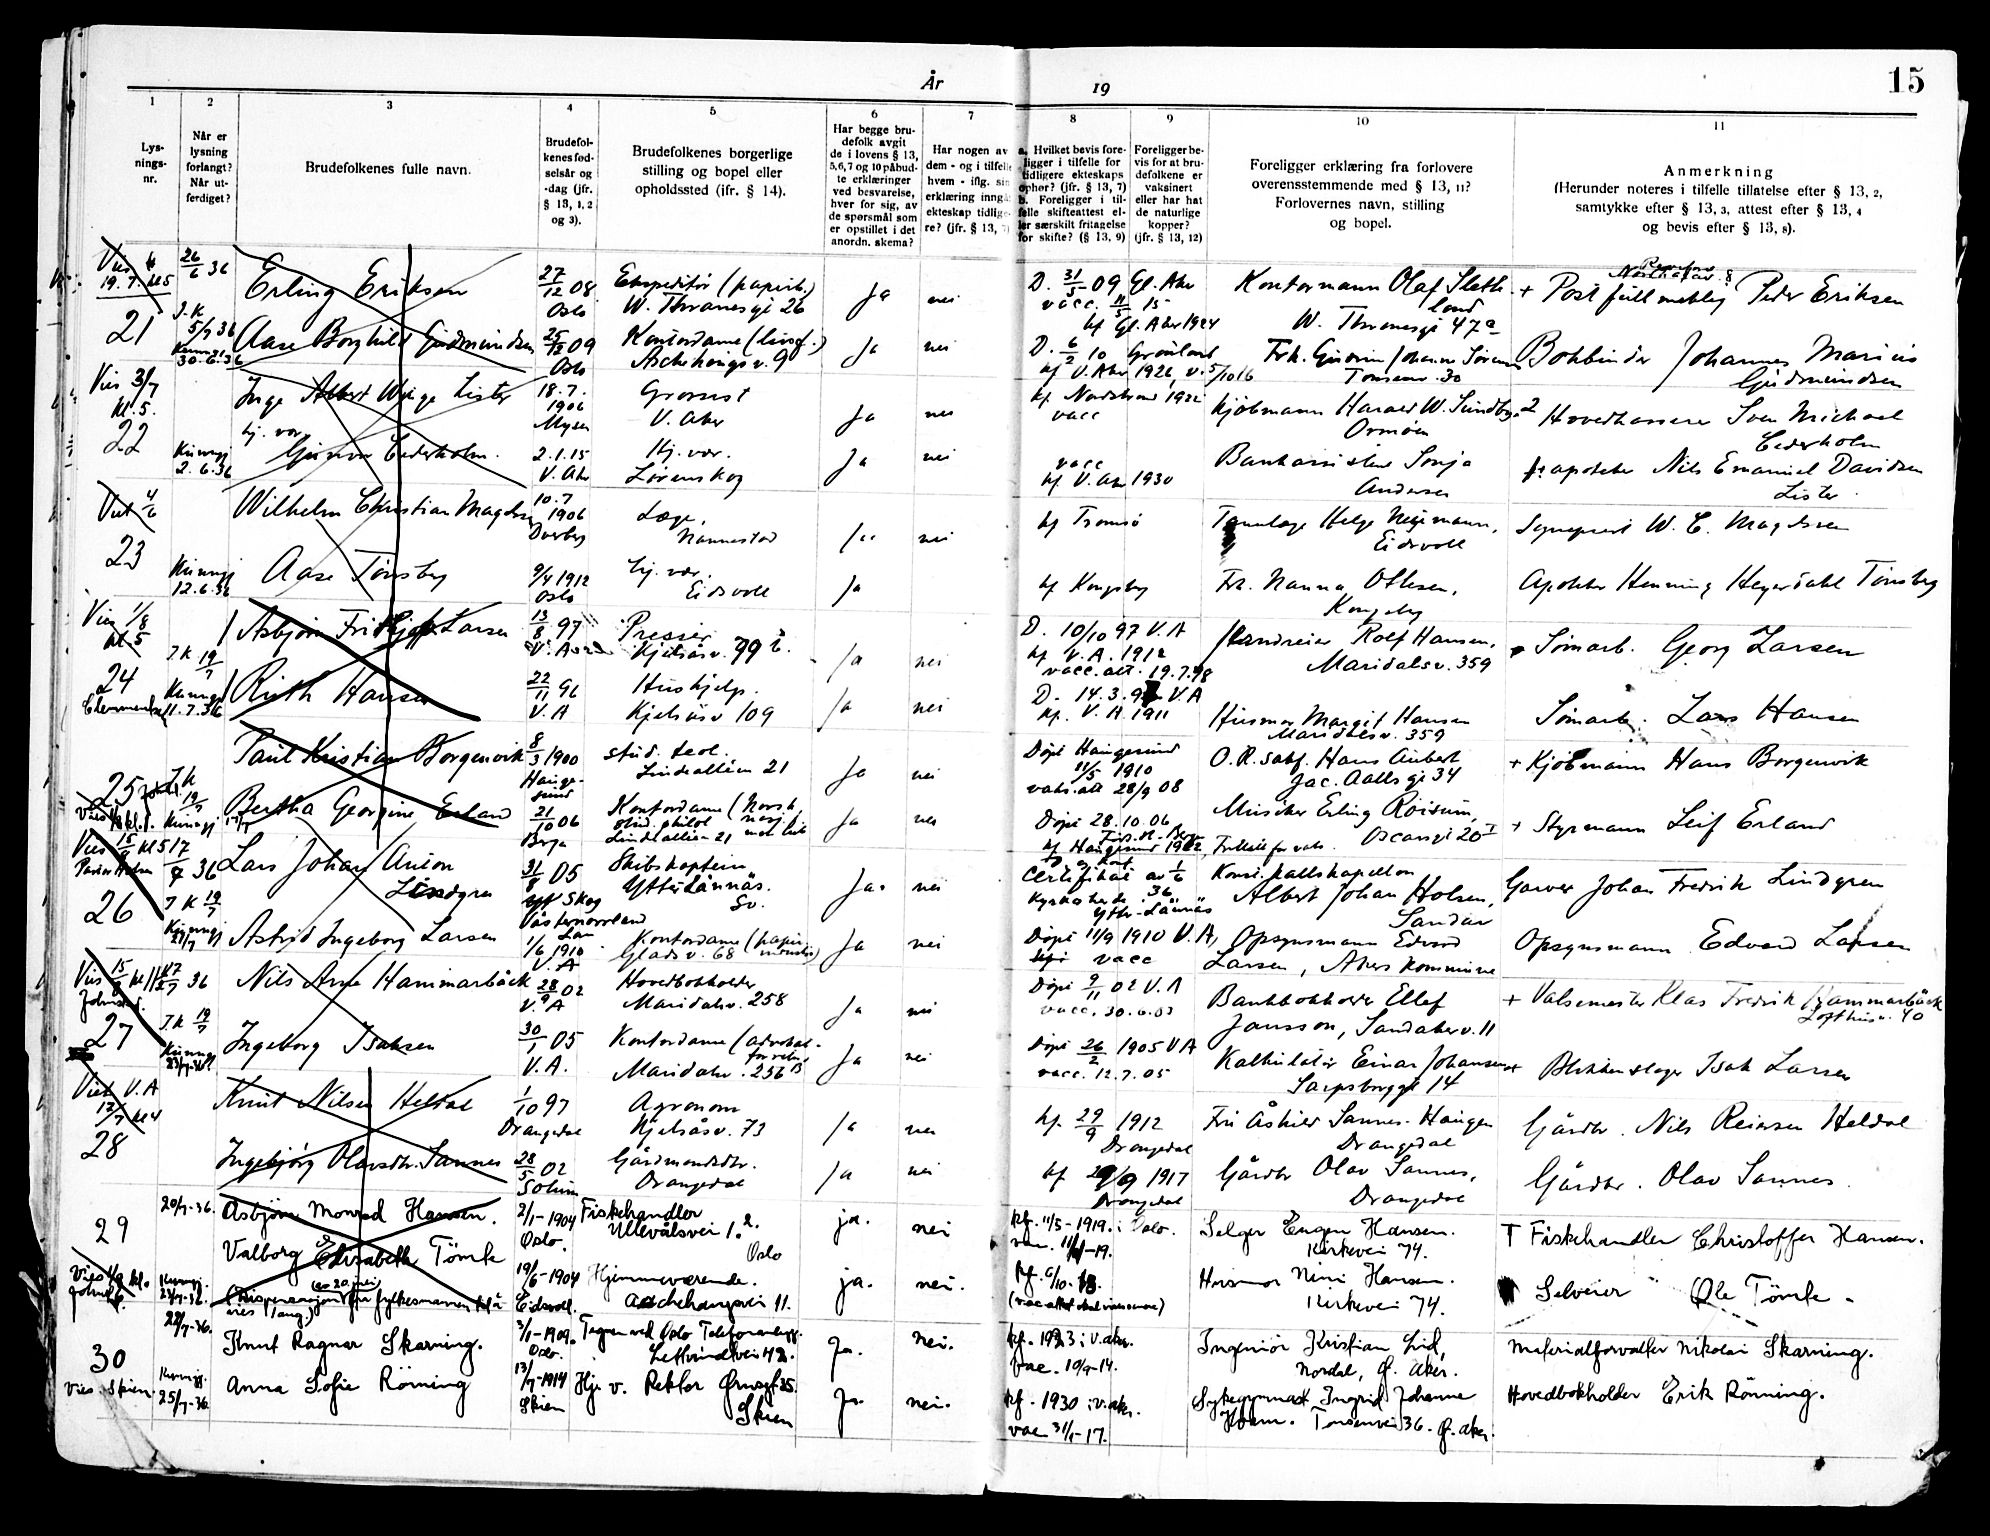 År 19 15
1 2 3 4 5 6 7 8 9 10 11
Lys-
nings-
nr.
Når er
lysning
forlangt?
Når ut-
ferdiget?
Brudefolkenes fulle navn.
Brudefol-
kenes fød-
selsår og
-dag (jfr.
§ 13, 1, 2
og 3).
Brudefolkenes borgerlige
stilling og bopel eller
opholdssted (jfr. § 14).
Har begge bru-
defolk avgit
de i lovens § 13,
5, 6, 7 og 10 påbud-
te erklæringer
ved besvarelse,
hver for sig, av
de spørsmål som
er opstillet i det
anordn. skema?
Har nogen av
dem - og i tilfelle
hvem - iflg. sin
erklæring inngå
ekteskap tidlige-
re? (jfr. § 13, 7)
a. Hvilket bevis fore-
ligger i tilfelle for
tidligere ekteskaps
ophør? (jfr. § 13, 7)
b. Foreligger i til-
felle skifteattest el-
ler særskilt fritagelse
for skifte? (§ 13, 9)
Foreligger be-
vis for at bru-
defolkene er
vaksinert
eller har hat
de naturlige
kopper?
(jfr. § 13, 12)
Foreligger erklæring fra forlovere
overensstemmende med § 13, 11?
Forlovernes navn, stilling
og bopel.
Anmerkning
(Herunder noteres i tilfelle tillatelse efter § 13, 2,
samtykke efter § 13, 3, attest efter § 13, 4
og bevis efter § 13, 8).
19.7. kl 5
21
26/6 36
5/7 36
30.6.36
Erling Eriksen
27/12 08
Oslo
Ekspeditør (papirb.)
W. Thranesgt 26
ja nei
D. 31/5 09 Gl. Aker
vacc. 11/5 15
kf Gl. Aker 1924
Kontormann Olaf Sleth
land
W. Thranesgt 47a
+ Postfullmektig Peder Eriksen
Aase Borghild Gudmundsen
25/12 09
Oslo
Kontordame
Aschehougsv. 9
ja nei
D. 6/2 10 Grønland
kf V. Aker 1926, v. 5/10 16
Frk. Gunvor Johanne Sørensen
Tonsenv. 30
Bokbinder Johannes Marius
Gudmundsen
Vies 3/7
kl. 5.
22
Kunngj
2.6.36
Inge Albert Wiige Lister
18.7.
1906
Mysen
Grosserist
V. Aker
ja nei
kf Nordstrand 1922
vacc
Kjøbmann Harald W. Sundby
Ormøen
Hovedkasserer Sven Michael
Cederholm
hj. vær
Gunvor Cederholm.
2.1.15
V. Aker
Hj. vær.
Lørenskog
ja nei
vacc
kf V. Aker 1930
Bankassistent Sonja
Andersen
apoteker Nils Emanuel Davidsen
Lister
Viet 4/6
23
Kunngj
12.6.36
Wilhelm Christian Magelssen
10.7
1906
Dverberg
Læge,
Nannestad
ja nei
kf Tromsø
Tannlæge Helge Neumann,
Eidsvoll
Sogneprest W. C. Magelssen
Aase Tønsberg
9/4 1912
Oslo
Hj. vær.
Eidsvoll
ja
kf Kongsberg
Frk. Nanna Ottesen,
Kongsberg
Apoteker Henning Heyerdahl Tønsberg
Vies 1/8
kl 5
24
Clemmetsen
I K 19/7
Kunngj
11.7.36
Asbjørn Fridtjof Larsen
13/8 97
V. Aker
Presser
Kjelsåsv. 99 b.
ja nei
D. 10/10 97 V.A
kf V.A. 1912
vacc. att. 19.7.98
Handreier Rolf Hansen,
Maridalsv. 359
Tømarb. Georg Larsen
Ruth Hansen
22/11 96
V.A
Hushjelp.
Kjelsåsv 109
ja nei
D. 14.3.97 V.A
kf. V.A. 1911
Husmor Margit Hansen
Maridalsv. 359
Tømarb. Lars Hansen
25
I.K
19/7
Kunngj 17/7
Paul Kristian Borgenvik
8/3 1900
Hauge-
sund
stud. teol.
Lindealléen 21
ja nei
Døpt Haugesund
11/5 1910
vaks. att 28/9 08
O.R. sakf. Hans Aubert
Jac. Aalls gt 34
+ Kjøbmann Hans Borgenvik
Bertha Georgine Erland
21/10 06
Kontordame (Norsk
stud. philol
Lindealléen 21
ja nei
Døpt 28.10.06
kf Haugesund 1922,
Musiker Erling Roisum,
Oscarsgt 20 I
+ Styrmann Leif Erland
Vies 15/8 kl 5
26
17/7 36
I K 19/7
Kunngj
21/7
Lars Johan Anton
Lindgren
31/8 05
Ytt Skog
Västernorrland
Län
Skibskaptein
Ytterlännäs.
Sv.
ja. nei
Certifikat av 1/6
36
Kyrkoherde i
Ytter-Lännäs
Konst. kallskapellan
Albert Johan Holsen,
Sandar
Garver Johan Fredrik Lindgren
Astrid Ingeborg Larsen
1/6 1910
V.A
Kontordame
Glads v. 68
ja nei
Døpt 11/9 1910 V.A,
vacc
Opsynsmann Edvard
Larsen, Akers kommune
Opsynsmann Edvard Larsen
27
17/7 36
I.K 19/7
Kunngj
23/7-36
Nils Arne Hammarbäck
28/9 02
V.A
Hovedbokholder
Maridalsv. 258
ja nei
Døpt 9/11 02 V.A
vacc. 30.6.03
Bankbokholder Ellef
Jansson, Sandakerv. 11
+ Valsemester Klas Fredrik Hammarbäck
Lofthusv. 40
Ingeborg Isaksen
30/1 05
V.A.
Kontordame (advokat-
Maridalsv. 256 B
ja nei
Døpt 26/2 1905 V A
vacc. 12.7.05
Kalkulatør Einar Johansen
Sarpsborggt 14
+ Blikkenslager Isak Larsen
Viet V.A
12/7 kl 4
28
Knut Nilsen Heldal
1/10 97
Drangedal
Agronom
Kjelsåsv. 73
ja nei
kf. 29/9 1912
Drangedal
Fru Åshild Sannes-Haugen
Drangedal
Gårdbr. Nils Reiersen Heldal
Ingebjørg Olavsdtr. Sannes
28/5 02
Solum
Gårdmandsdtr.
Drangedal
ja nei
kf 29/9 1917
Drangedal
Gårdbr Olav Sannes,
Drangedal
Gårdbr. Olav Sannes
29
20/7-36.
Asbjørn Monrad Hansen.
2/1-1904
Oslo.
Fiskehandler
Ullevålsvei 12.
Oslo
ja. nei
kf. 11/5-1919. i Oslo.
Selger Eugen Hansen.
Kirkevei 74.
T Fiskehandler Christoffer Hansen.
Kunngj.
23/7-36.
Valborg Elisabeth Tømte
19/6-1904
Eidsvoll.
Hjemmeværende.
Aschehougsvei 11.
ja. nei.
Husmor Nini Hansen.
Kirkevei 74.
Selveier Ole Tømte -
30
vies. Skien.
22/7-36.
Kunngj.
25/7-36.
Knut Ragnar Skarning.
3/1-1909.
Oslo.
Tegner ved Oslo Telefonanlegg.
Lettvindtvei 42.
Ja. nei.
kf. 1923 i v. aker.
vac. 10/9-14.
Ingeniør Kristian Lid,
Nordal, Ø. Aker.
Materialforvalter Nikolai Skarning.
Anna Sofie Rönning
13/7-1914
Skien
Hj. v. Rektor Ørnsgt 35.
Skien
Ja. nei.
kf. 1930 i v. aker.
vac 31/1-17.
Sykegymnast Ingrid Johanne
Hoem. Tonsenvei 36. Ø. aker.
Hovedbokholder Erik Rönning.